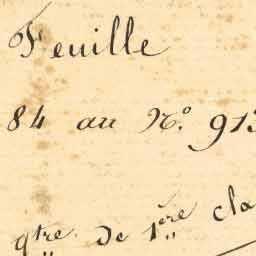 Feuille
84 au N.° 913
qtre. de 1ère cla